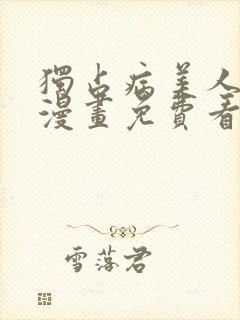 獨占病美人
漫畫免費看
雪落君